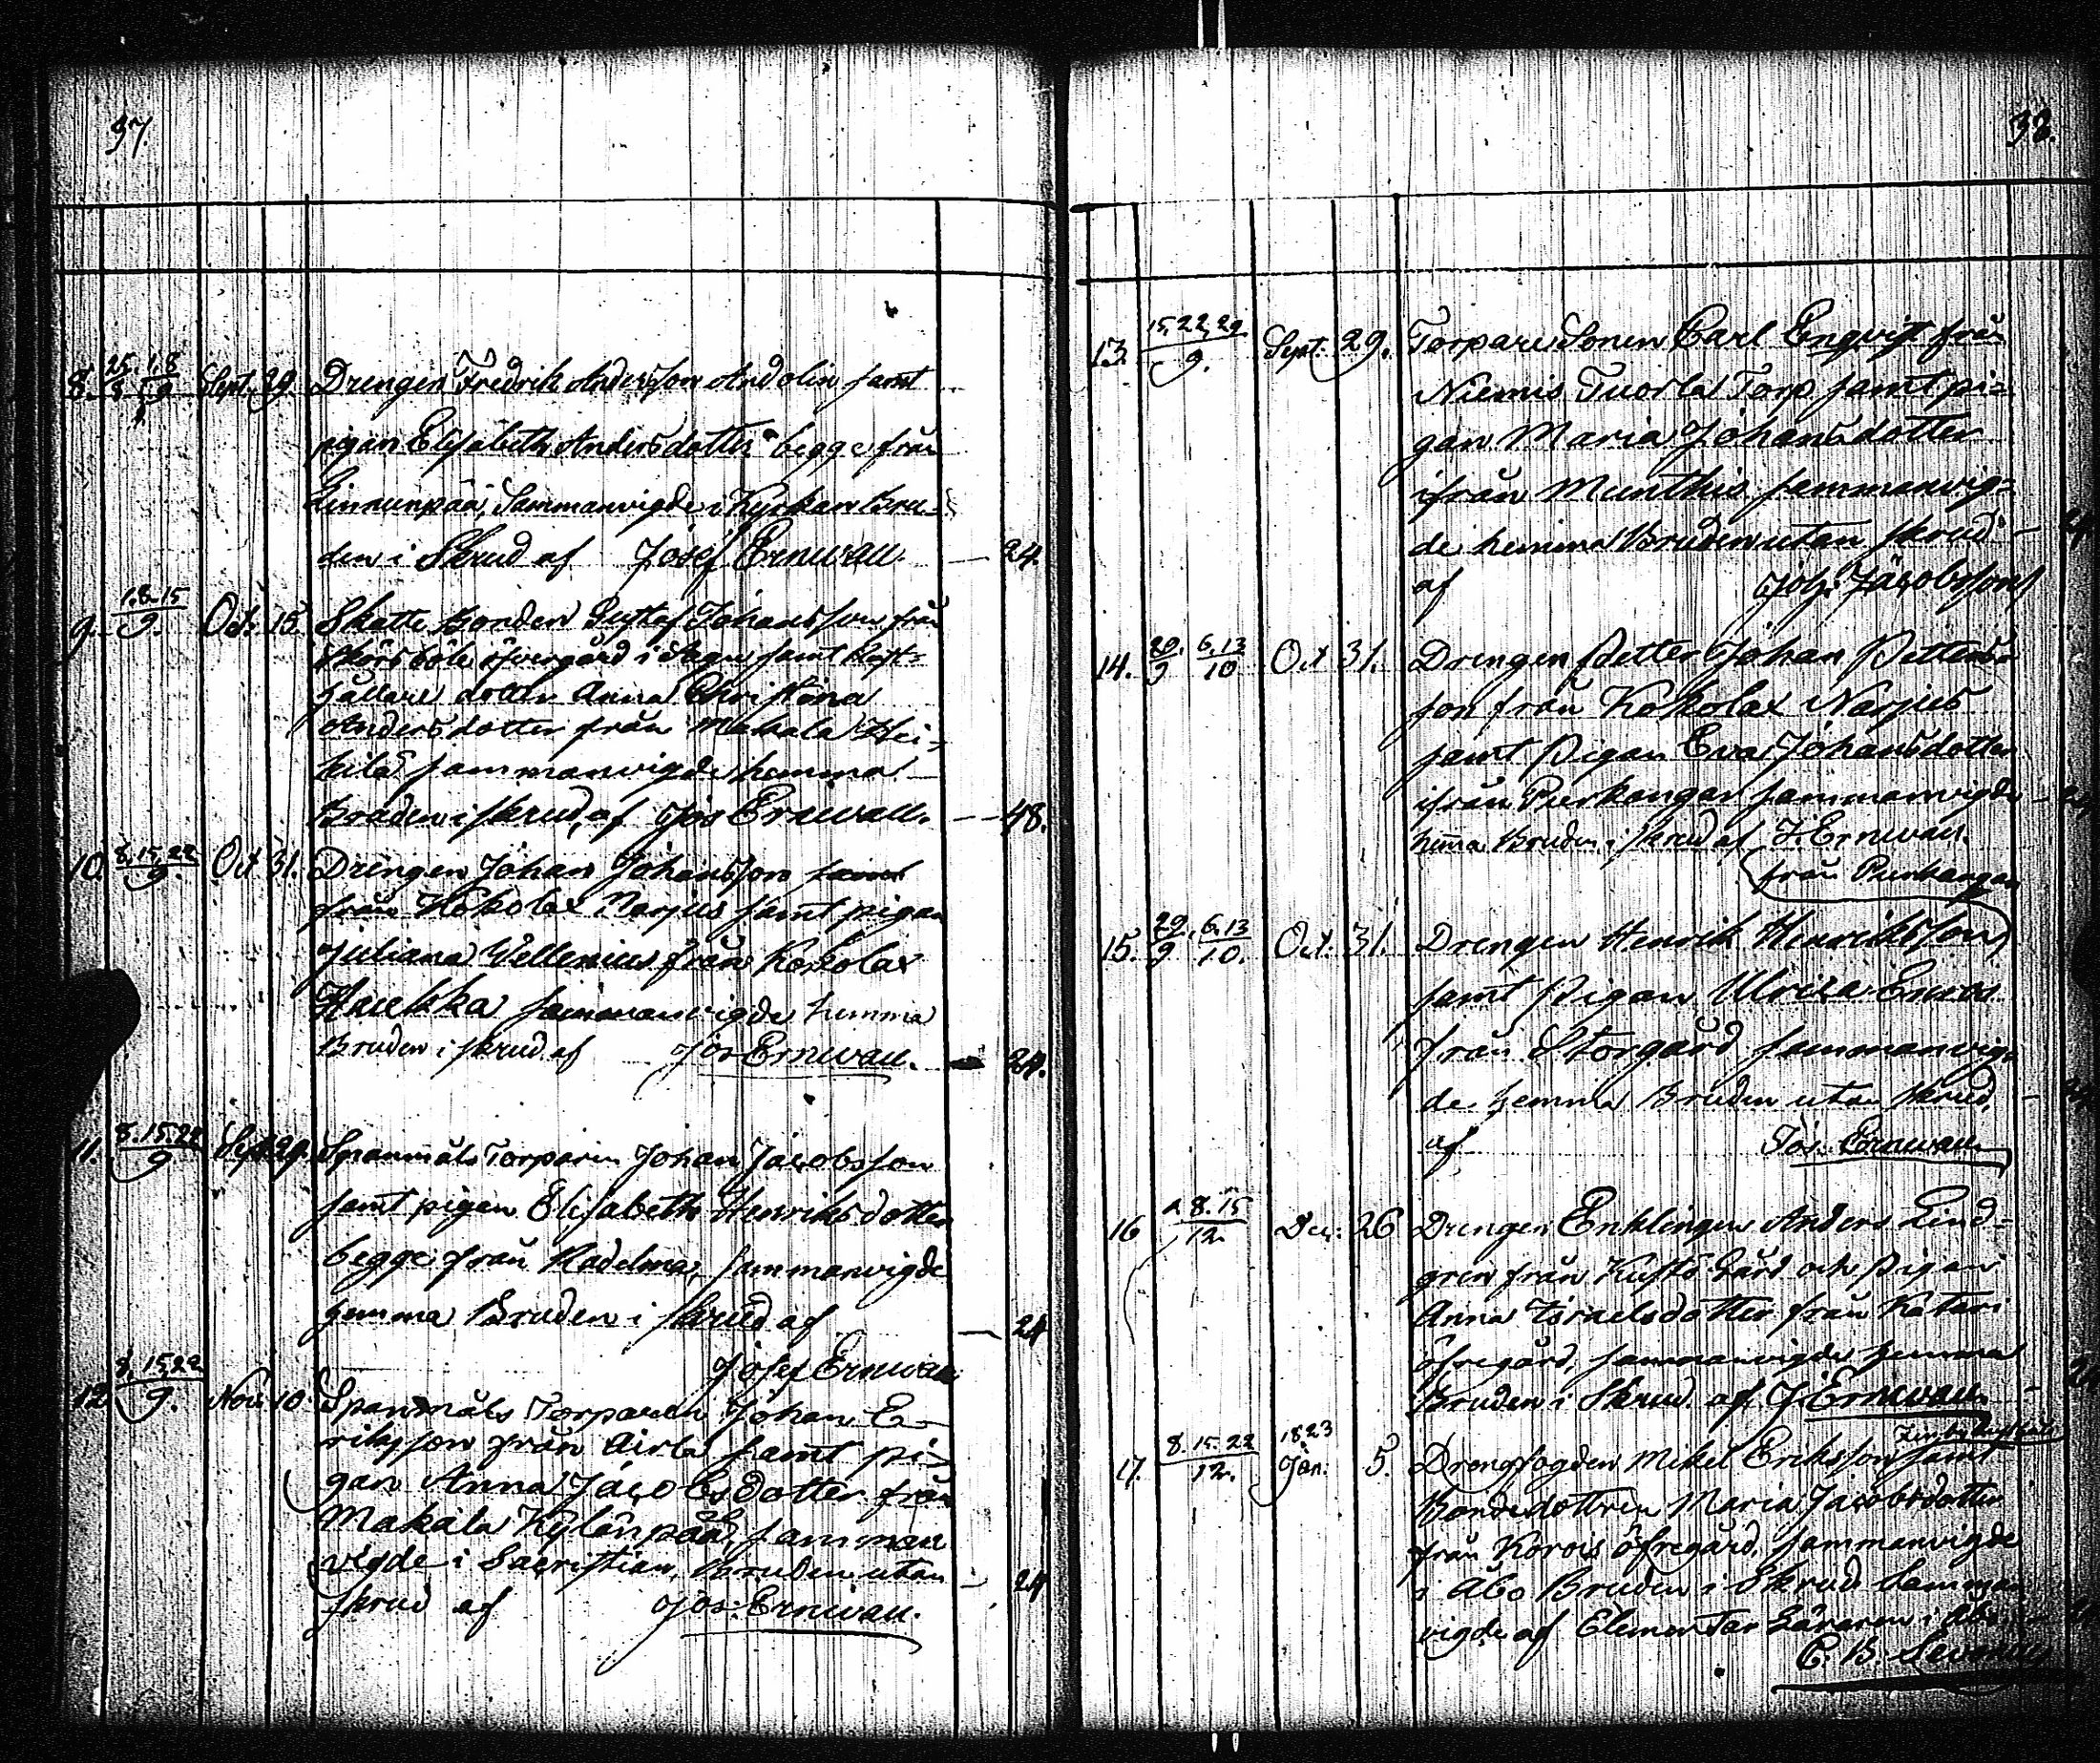 37.
8. 25/8 1.8/9 Sept. 29. Drengen Fredrik Andersson Andolin samt
pigan Elisabeth Andersdotter begge från
Linnunpää, Sammanvigde i Kyrkan Bru-
den i Skrud af Josef Ernwall. — 24.
9. 1.8.15/9. Oct. 15. Skatte bonden Gustaf Johansson från
Skörsböle öfvergård i Sagu samt Rust-
hållare dotter Anna Christina
Andersdotter från Makala Hei-
kilä sammanvigde hemma
Bruden i skrud, af Jos Ernwall. — 48.
10. 8.15.22/9. Oct 31. Drengen Johan Johansson samt
från Kokolax Narjus samt pigan
Juliana Wellenius från Kokolax
Haukka sammanvigde hemma
Bruden i skrud af Jos Ernwall. — 24.
11. 8.15.22/9 Sept 29. Spanmåls Torparen Johan Jacobsson
samt pigan Elisabeth Henriksdotter
begge från Kadelma, sammanvigde
hemma Bruden i skrud af — 24
Josef Ernwall
12 8.15.22/9. Nov. 10. Spanmåls Torparen Johan E-
riksson från Airla samt pi-
gan Anna Jacobsdotter från
Makala Kylänpää, samman
vigde i Sacristian, Bruden utan — 24
skrud af Jos: Ernwall.
38.
13. 15.22.29./9. Sept. 29. Torpare Sonen Carl Enqvist från
Niemis Tuorla Torp samt pi-
gan Maria Johansdotter
ifrån Munthis sammanvig-
de hemma Bruden utan skrud —
af Joh: Jacobsson
14. 29./9 6.13/10 Oct 31. Drengen Petter Johan Petters-
son från Kokolax Narjus
samt Pigan Eva Johansdotter
ifrån Purkangar sammanvigde —
hemma Bruden i skrud af J. Ernwall.
från Purkangar
15. 29/9. 6.13/10. Oct. 31. Drengen Henrik Henriksson
samt Pigan Ulrica
från Storgård sammanvig-
de hemma Bruden utan skrud, —
af Jos: Ernwall
16 1.8.15/12. Dec: 26 Drengen Enklingen Anders Lind-
gren från Kustö Gård och Pigan
Anna Israelsdotter från Katari
öfregård, sammanvigde hemma
Bruden i Skrud. af J. Ernwall. —
17. 8.15.22/12. 1823 Jan. 5. Drengfogden Mikel Eriksson samt
Bondedottren Maria Jacobsdotter
från Korois öfregård, sammanvigde
i Åbo Bruden i Skrud Samman
vigde af Elementar Läraren i Åbo
C. B.